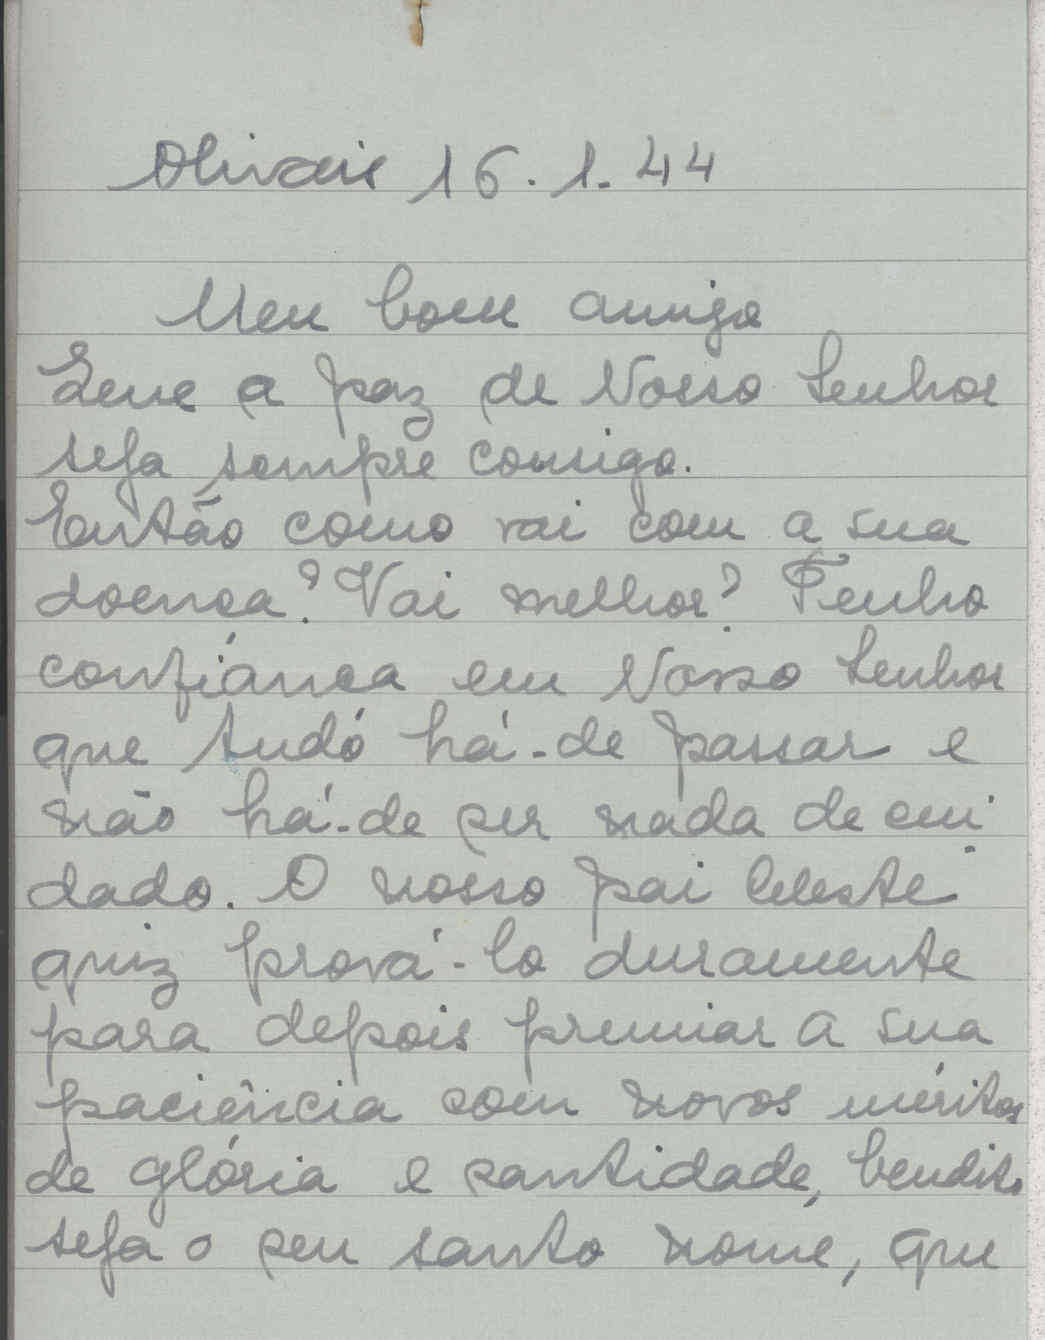 Olivais 16.1.44
Meu bom amigo
Que a paz de Nosso Senhor
seja sempre comsigo.
Então como vai com a sua
doença? Vai melhor? Tenho
confiança em Nosso Senhor
que tudo há-de passar e
não há-de ser nada de cui
dado. O nosso pai Celeste
quiz prová-lo duramente
para depois premiar a sua
paciência com novos méritos
de glória e santidade, bendito
seja o seu santo nome, que